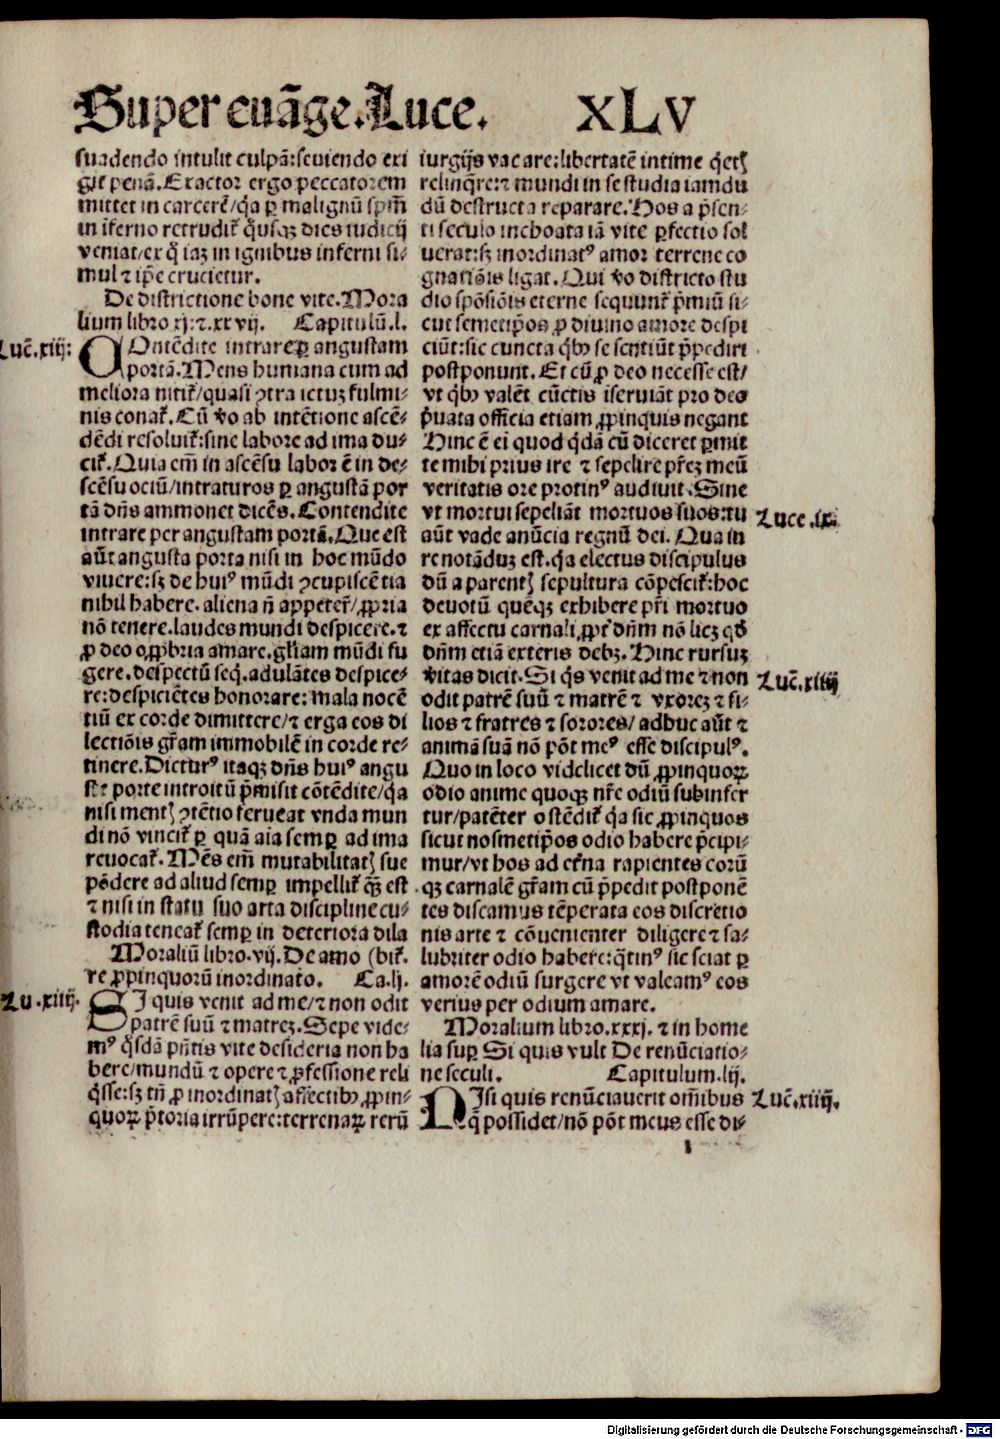 Super euãge. Luce. XLV
suadendo intulit culpã: seuiendo exi
git᷑ penã. Exactor ergo peccatorem
mittet in carcerē/q̇a ꝑ malignũ spm̃
in īferno retrudit᷑ q̇usqꝫ dies iudicij
veniat/ex q̊ iaꝫ in ignibus inferni si⸗
mul ⁊ ip̃e crucietur.
De districtione bone vite. Mora
lium libro .xj: ⁊ .xxvij. Capitulũ .l.
Luc̃. xiij:
COntēdite intrare ꝑ angustam
portã. Mens humana cum ad
meliora nitit᷑/quasi ꝯtra ictuꝫ fulmi⸗
nis conat᷑. Cũ v̊o ab intētione ascē⸗
dēdi resoluit᷑: sine labore ad ima du⸗
cit᷑. Quia em̃ in ascēsu labor ē in de⸗
scēsu ociũ/intraturos ꝑ angustã por
tã dñs ammonet dicēs. Contendite
intrare per angustam portã. Que est
aũt angusta porta nisi in hoc mũdo
viuere: sꝫ de huiꝰ mũdi ꝯcupiscētia
nihil habere. aliena ñ appeter̃/ꝓpria
nõ tenere. laudes mundi despicere. ⁊
ꝓ deo oꝓbria amare. gl̃iam mũdi fu
gere. despectũ seq̇. adulãtes despice⸗
re: despiciētes honorare: mala nocē
tiũ ex corde dimittere/⁊ erga eos di
lectiõis gr̃am immobilē in corde re⸗
tinere. Dicturꝰ itaqꝫ dñs huiꝰ angu
ste porte introitũ p̃misit cõtēdite/q̇a
nisi mentꝭ ꝯtētio ferueat vnda mun
di nõ vincit᷑ ꝑ quã aĩa semꝑ ad ima
reuocat᷑. Mēs em̃ mutabilitatꝭ sue
põdere ad aliud semꝑ impellit᷑ q̃ꝫ est
⁊ nisi in statu suo arta discipline cu⸗
stodia teneat᷑ semꝑ in deteriora dila
Moraliũ libro .vij. De amo (bit᷑.
re ꝓpinquorũ inordinato. Ca. lj.
Lu. xiiij.
SI quis venit ad me/⁊ non odit
patrē suũ ⁊ matreꝫ. Sepe vide⸗
mꝰ q̇sdã pñtis vite desideria non ha
bere/mundũ ⁊ opere ⁊ ꝓfessione reli
q̇sse: sꝫ tñ ꝓ inordinatꝭ affectibꝰ ꝓpin⸗
quoꝝ p̃toria irrũpere: terrenaꝝ rerũ
iurgijs vacare: libertatē intime q̇etꝭ
relinq̃re: ⁊ mundi in se studia iamdu
dũ destructa reparare. Hos a p̃sen⸗
ti seculo inchoata iã vite ꝑfectio sol
uerat: sꝫ inordinatꝰ amor terrene co
gnatiõis ligat. Qui v̊o districto stu
dio spõsiõis eterne sequunt᷑ p̃miũ si⸗
cut semetip̃os ꝓ diuino amore despi
ciũt: sic cuncta q̇bꝰ se sentiũt p̃pediri
postponunt. Et cũ ꝓ deo necesse est/
vt q̇bꝰ valēt cũctis īseruiãt pro deo
p̃uata officia etiam ꝓpinquis negant
Hinc ē ei quod q̇dã cũ diceret ꝑmit
te mihi prius ire ⁊ sepelire pr̃eꝫ meũ
veritatis ore protinꝰ audiuit. Sine
vt mortui sepeliãt mortuos suos: tu
Luce .ix.
aũt vade anũcia regnũ dei. Qua in
re notãduꝫ est. q̇a electus discipulus
dũ a parentꝭ sepultura cõpescit᷑: hoc
deuotũ quēqꝫ exhibere pr̃i mortuo
ex affectu carnali ꝓpt᷑ dñm nõ licꝫ qđ
dñm etiã exteris debꝫ. Hinc rursuꝫ
v̊itas dicit. Si q̇s venit ad me ⁊ non
Luc̃. xiiij
odit patrē suũ ⁊ matrē ⁊ vxoreꝫ ⁊ fi⸗
lios ⁊ fratres ⁊ sorores/ adhuc aũt ⁊
animã suã nõ põt meꝰ esse discipulꝰ.
Quo in loco videlicet dũ ꝓpinquoꝝ
odio anime quoqꝫ nr̃e odiũ subinfer
tur/patēter ostēdit᷑ q̇a sic ꝓpinquos
sicut nosmetip̃os odio habere p̃cipi⸗
mur/vt hos ad et᷑na rapientes eorũ
qꝫ carnalē gr̃am cũ p̃pedit postponē
tes discamus tēperata eos discretio
nis arte ⁊ cõuenienter diligere ⁊ sa⸗
lubriter odio habere: q̃tinꝰ sic sciat ꝑ
amorē odiũ surgere vt valeamꝰ eos
verius per odium amare.
Moralium libro .xxxj. ⁊ in home
lia suꝑ Si quis vult De renũciatio⸗
ne seculi. Capitulum .lij.
NIsi quis renũciauerit om̃ibus
Luc̃. xiiij.
q̃ possidet/nõ põt meus esse di⸗
Digitalisierung gefördert durch die Deutsche Forschungsgemeinschaft - DFG